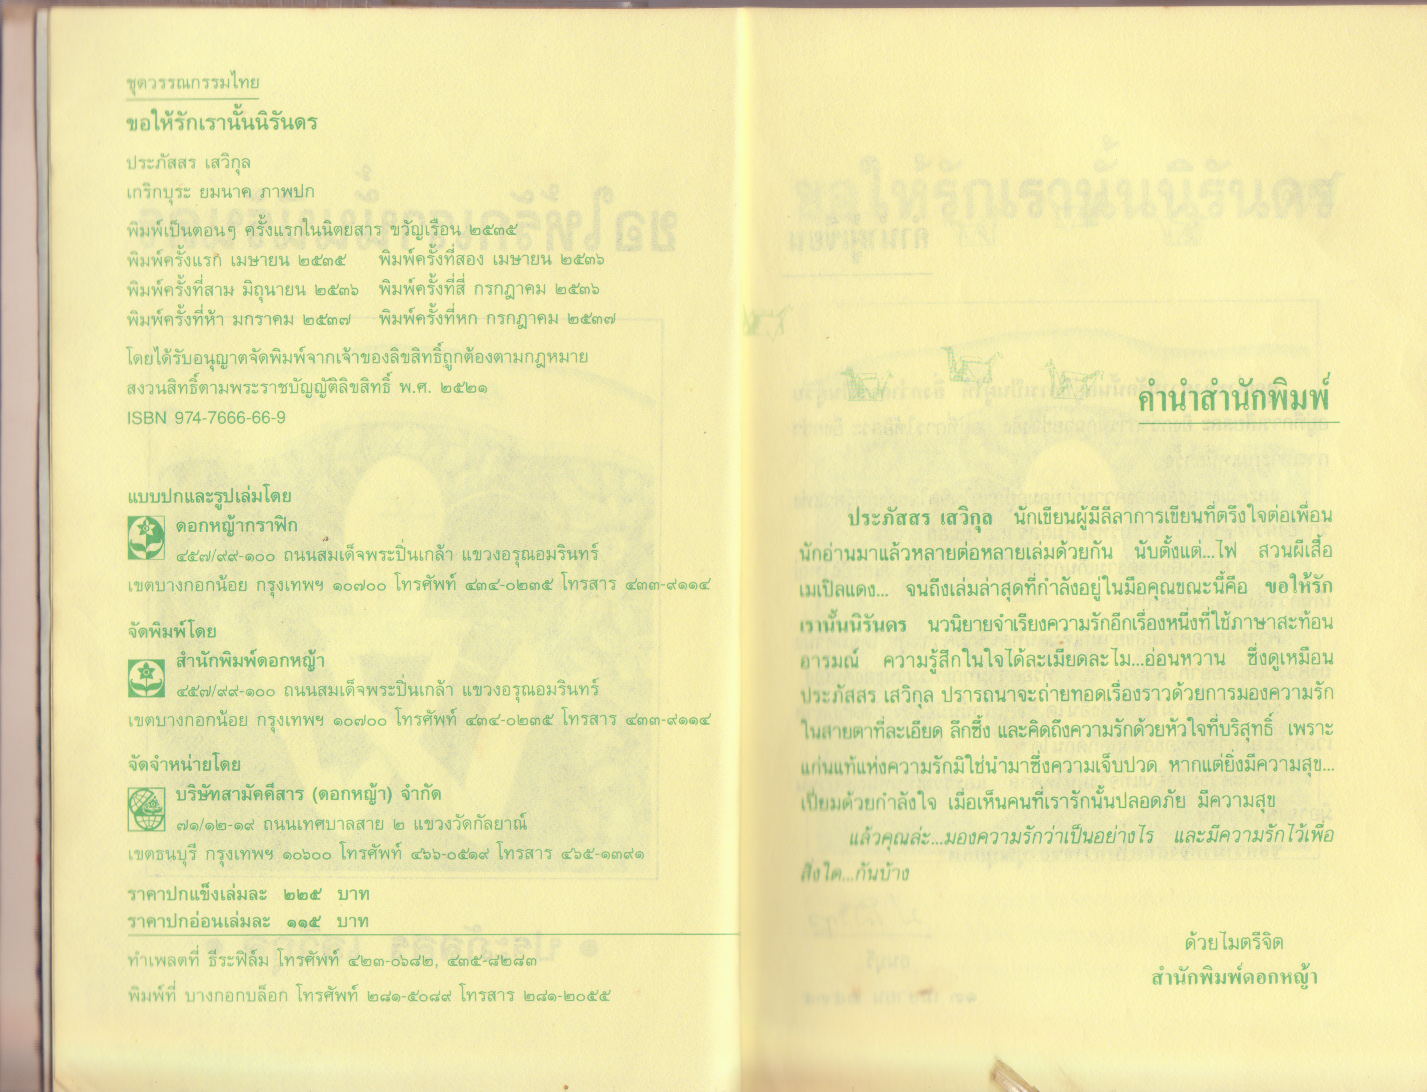 ชุดวรรณกรรมไทย
ขอให้รักเรานั้นนิรันดร
ประภัสสร เสวิกุล
เกริกบุระ ยมนาค ภาพปก
พิมพ์เป็นตอนๆ ครั้งแรกในนิตยสาร ขวัญเรือน ๒๕๓๕
พิมพ์ครั้งแรก เมษายน ๒๕๓๕ พิมพ์ครั้งที่สอง เมษายน ๒๕๓๖
พิมพ์ครั้งที่สาม มิถุนายน ๒๕๓๖ พิมพ์ครั้งที่สี่ กรกฎาคม ๒๕๓๖
พิมพ์ครั้งที่ห้า มกราคม ๒๕๓๗ พิมพ์ครั้งที่หก กรกฎาคม ๒๕๓๗
โดยได้รับอนุญาตจัดพิมพ์จากเจ้าของลิขสิทธิ์ถูกต้องตามกฎหมาย
สงวนสิทธิ์ตามพระราชบัญญัติลิขสิทธิ์ พ.ศ. ๒๕๒๑
ISBN 974-7666-66-9
แบบปกและรูปเล่มโดย
ดอกหญ้ากราฟิก
๔๕๗/๙๙-๑๐๐ ถนนสมเด็จพระปิ่นเกล้า แขวงอรุณอมรินทร์
เขตบางกอกน้อย กรุงเทพฯ ๑๐๗๐๐ โทรศัพท์ ๔๓๔-๐๒๓๕ โทรสาร ๔๓๓-๙๑๑๔
จัดพิมพ์โดย
สำนักพิมพ์ดอกหญ้า
๔๕๗/๙๙-๑๐๐ ถนนสมเด็จพระปิ่นเกล้า แขวงอรุณอมรินทร์
เขตบางกอกน้อย กรุงเทพฯ ๑๐๗๐๐ โทรศัพท์ ๔๓๔-๐๒๓๕ โทรสาร ๔๓๓-๙๑๑๔
จัดจำหน่ายโดย
บริษัทสามัคคีสาร (ดอกหญ้า) จำกัด
๗๑/๑๒-๑๙ ถนนเทศบาลสาย ๒ แขวงวัดกัลยาณ์
เขตธนบุรี กรุงเทพฯ ๑๐๖๐๐ โทรศัพท์ ๔๖๖-๐๕๑๙ โทรสาร ๔๖๕-๑๓๙๑
ราคาปกแข็งเล่มละ ๒๒๕ บาท
ราคาปกอ่อนเล่มละ ๑๑๕ บาท
ทำเพลตที่ ธีระฟิล์ม โทรศัพท์ ๔๒๓-๐๖๘๒, ๔๓๕-๘๒๘๓
พิมพ์ที่ บางกอกบล็อก โทรศัพท์ ๒๘๑-๕๐๘๙ โทรสาร ๒๘๑-๒๐๕๕
คำนำสำนักพิมพ์
ประภัสสร เสวิกุล นักเขียนผู้มีลีลาการเขียนที่ตรึงใจต่อเพื่อน
นักอ่านมาแล้วหลายต่อหลายเล่มด้วยกัน นับตั้งแต่...ไฟ สวนผีเสื้อ
เมเปิลแดง... จนถึงเล่มล่าสุดที่กำลังอยู่ในมือคุณขณะนี้คือ ขอให้รัก
เรานั้นนิรันดร นวนิยายจำเรียงความรักอีกเรื่องหนึ่งที่ใช้ภาษาสะท้อน
อารมณ์ ความรู้สึกในใจได้ละเมียดละไม...อ่อนหวาน ซึ่งดูเหมือน
ประภัสสร เสวิกุล ปรารถนาจะถ่ายทอดเรื่องราวด้วยการมองความรัก
ในสายตาที่ละเอียด ลึกซึ้ง และคิดถึงความรักด้วยหัวใจที่บริสุทธิ์ เพราะ
แก่นแท้แห่งความรักมิใช่นำมาซึ่งความเจ็บปวด หากแต่ยิ่งมีความสุข...
เปี่ยมด้วยกำลังใจ เมื่อเห็นคนที่เรารักนั้นปลอดภัย มีความสุข
แล้วคุณล่ะ...มองความรักว่าเป็นอย่างไร และมีความรักไว้เพื่อ
สิ่งใด...กันบ้าง
ด้วยไมตรีจิต
สำนักพิมพ์ดอกหญ้า